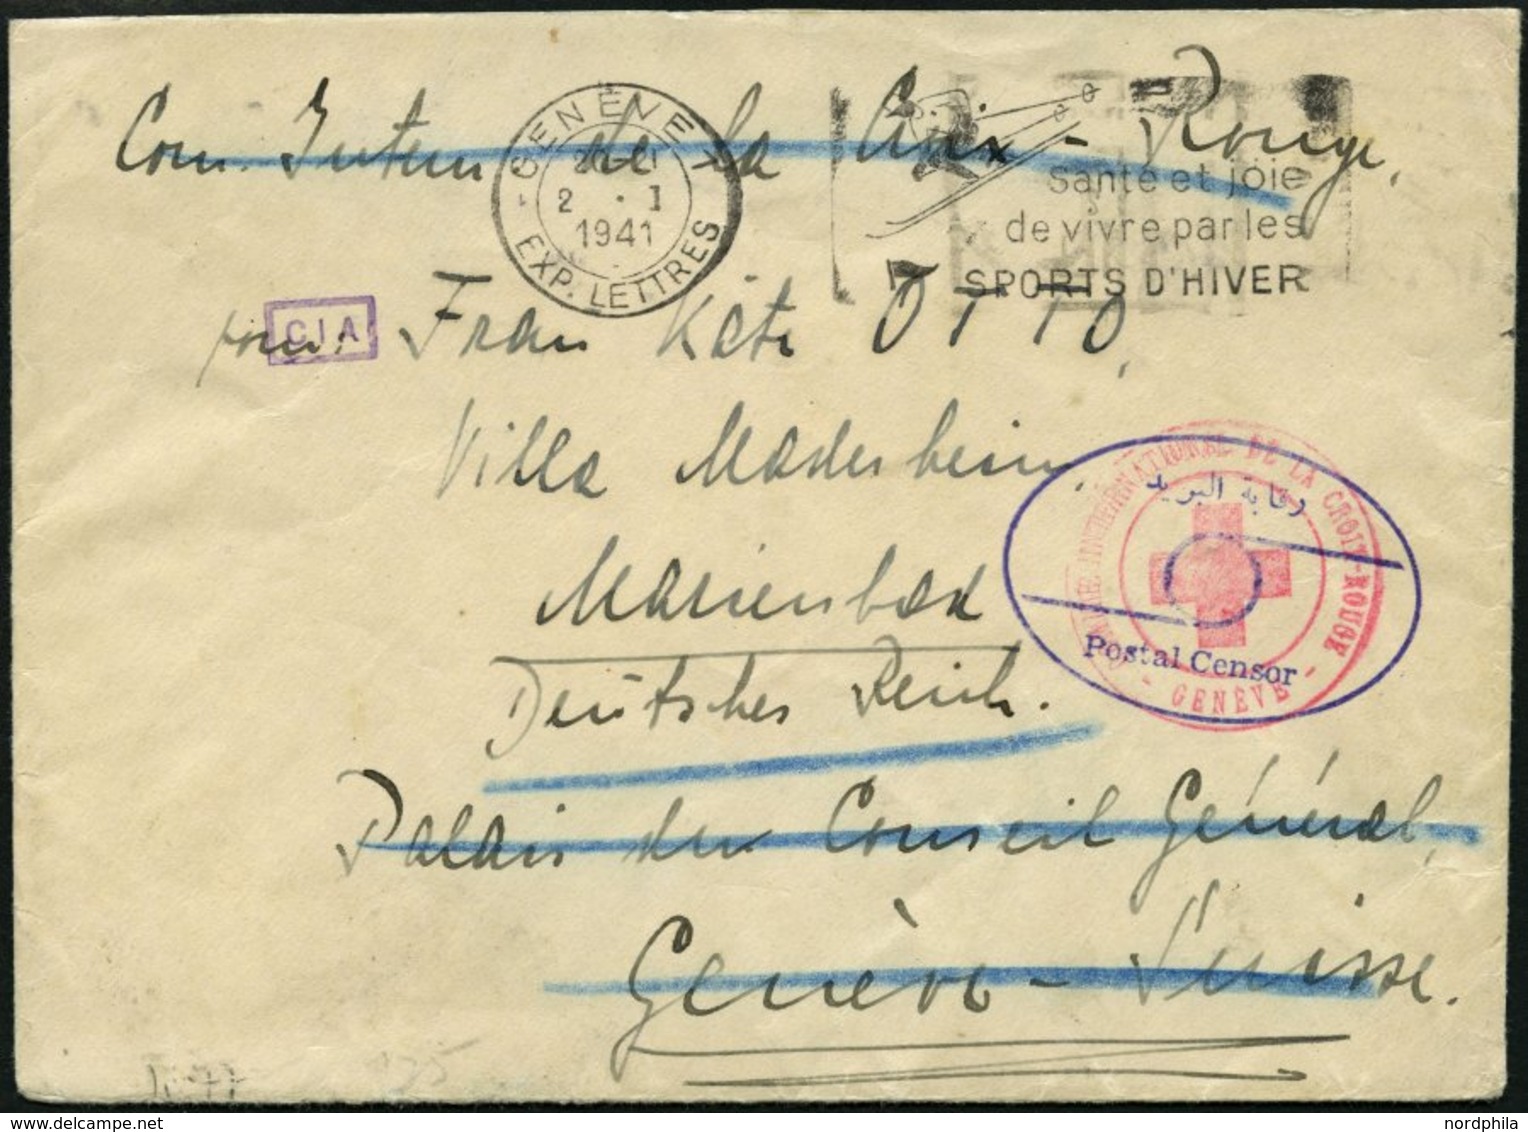 Com. Intern de la Croix-Rouge,
GENÈVE 1
2 . I
1941
EXP. LETTRES
Santé et joie
de vivre par les
SPORTS D'HIVER
pour: Frau Käte OTTO,
CIA
Villa Maderheim,
Marienbad
Deutsches Reich.
COMITÉ INTERNATIONAL DE LA CROIX-ROUGE
- GENÈVE -
رقابة البريد
Postal Censor
Palais du Conseil Général,
Genève - Suisse.
125
nordphila